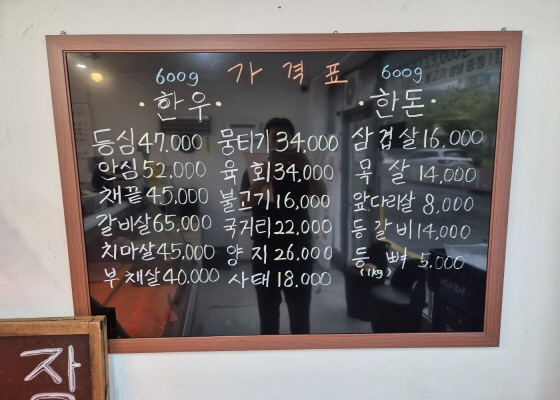 가격표
600g
·한우·
등심 47,000
안심 52,000
채끝 45,000
갈비살 65,000
치마살 45,000
부채살 40,000
뭉티기 34,000
육회 34,000
불고기 16,000
국거리 22,000
양지 26,000
사태 18,000
600g
·한돈·
삼겹살 16,000
목살 14,000
앞다리살 8,000
등갈비 14,000
등뼈 5,000
(1kg)